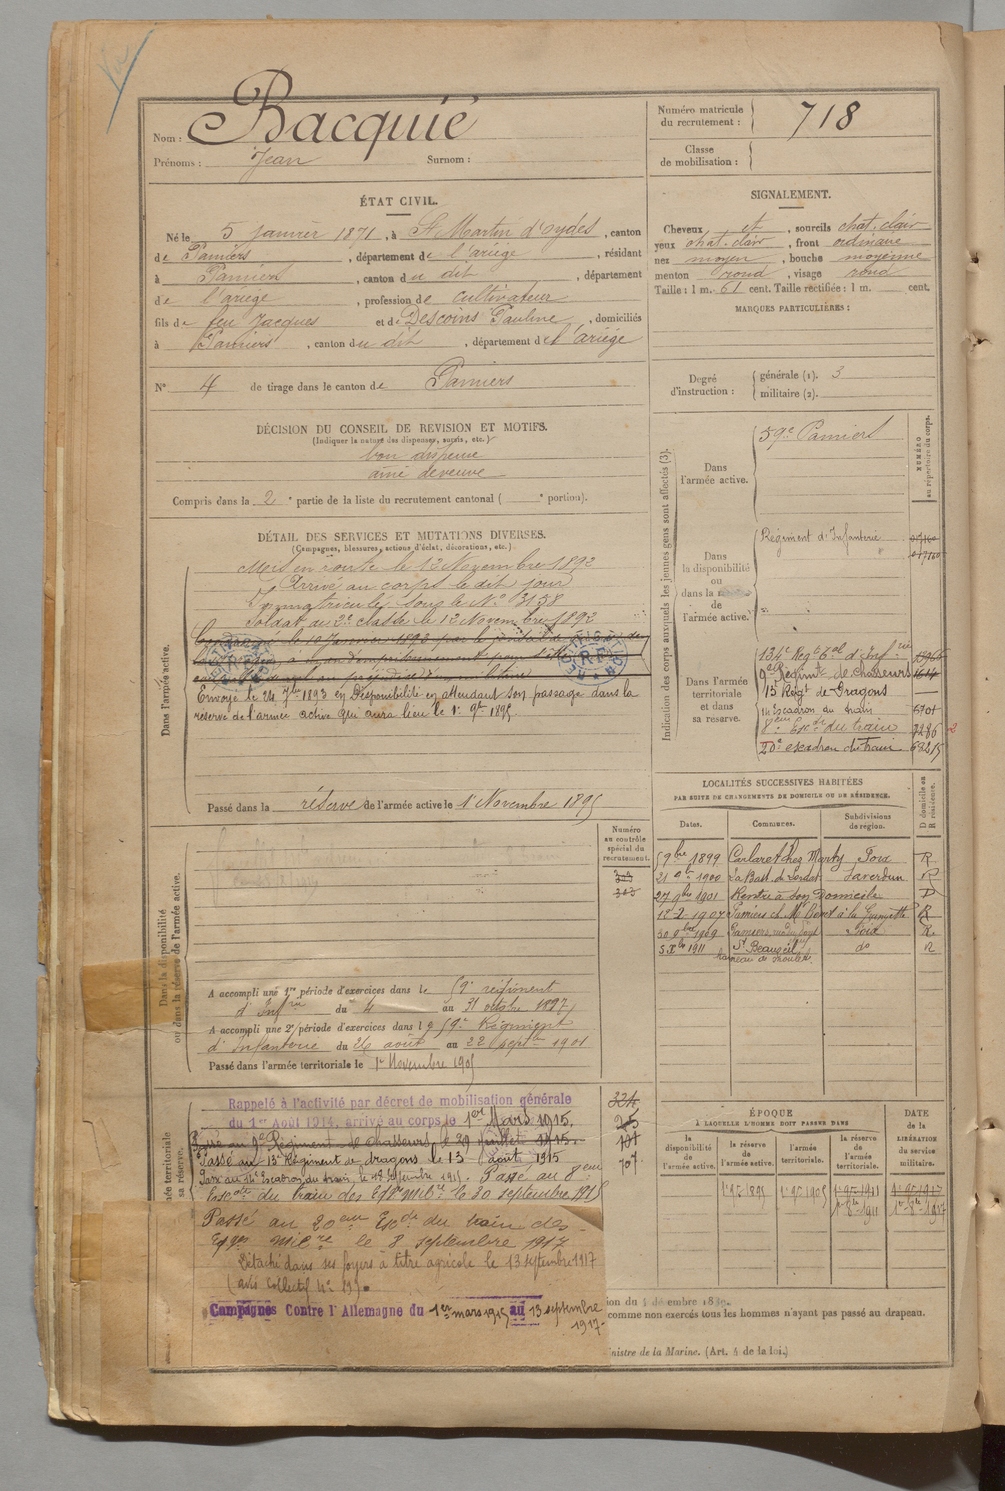 Nom : Bacquié
Prénoms : Jean Surnom :
Numéro matricule du recrutement : 718
Classe de mobilisation :
ÉTAT CIVIL.
Né le 5 janvier 1871, à St Martin d'Oydes, canton
de Pamiers, département de l'ariège, résidant
à Pamiers, canton du dit, département
de l'ariège, profession de cultivateur
fils de feu Jacques et de Descoins Pauline, domiciliés
à Pamiers, canton du dit, département de l'ariège
N° 4 de tirage dans le canton de Pamiers
SIGNALEMENT.
Cheveux et, sourcils chat. clair
yeux chat. clair, front ordinaire
nez moyen, bouche moyenne
menton rond, visage rond
Taille : 1 m. 61 cent. Taille rectifiée : 1 m. cent.
MARQUES PARTICULIÈRES :
Degré d'instruction : générale (1). 3
militaire (2).
DÉCISION DU CONSEIL DE REVISION ET MOTIFS.
(Indiquer la nature des dispenses, sursis, etc.)
bon dispensé
aîné de veuve
Compris dans la 2e partie de la liste du recrutement cantonal ( e portion).
DÉTAIL DES SERVICES ET MUTATIONS DIVERSES.
(Campagnes, blessures, actions d'éclat, décorations, etc.).
Dans l'armée active.
Mis en route le 12 Novembre 1892
Arrivé au corps le dit jour
Immatriculé sous le N° 3158
Soldat de 2e classe le 12 Novembre 1892
Envoyé le 24 7bre 1893 en Disponibilité en attendant son passage dans la
réserve de l'armée active qui aura lieu le 1er 9bre 1895
Passé dans la réserve de l'armée active le 1er Novembre 1895
Dans la disponibilité ou dans la réserve de l'armée active.
Numéro au contrôle spécial du recrutement.
303
A accompli une 1re période d'exercices dans le 59e régiment
d'Infrie du 4 au 31 octbre 1897
A accompli une 2e période d'exercices dans le 59e Régiment
d'Infanterie du 26 août au 22 septbre 1901
Passé dans l'armée territoriale le 1er Novembre 1905
Rappelé à l'activité par décret de mobilisation générale
du 1er Août 1914, arrivé au corps le 1er Mars 1915,
Passé au 9e Régiment de chasseurs, le 29 juillet 1915.
Passé au 13e Régiment de dragons le 13 août 1915
Passé au 14e Escadron du train, le 18 septembre 1915. Passé au 8eme
Escon du train des Eqges milres le 30 septembre 1915
Passé au 20eme Escon du train des
Eqges milre le 8 septembre 1917
Détaché dans ses foyers à titre agricole le 13 septembre 1917
(avis collectif N° 29).
Campagnes Contre l'Allemagne du 1er mars 1915 au 13 septembre
1917
Indication des corps auxquels les jeunes gens sont affectés (3).
NUMÉRO au répertoire du corps.
Dans l'armée active.
59e Pamiers
Dans la disponibilité ou dans la réserve de l'armée active.
Régiment d'Infanterie
Dans l'armée territoriale et dans sa réserve.
134e Régt Teal d'Infrie
9e Régiment de chasseurs
13e Regt de Dragons
14 Escadron du train
8eme Escon du train
20e escadron du train
LOCALITÉS SUCCESSIVES HABITÉES
PAR SUITE DE CHANGEMENTS DE DOMICILE OU DE RÉSIDENCE.
Dates. Communes. Subdivisions de région. D domicile ou R résidence.
5 9bre 1899 Carlaret chez Marty Foix R
1900 La Bast. de Lordat Saverdun R
27 9bre 1901 Rentré à son Domicile D
12-2-1907 Pamiers R
1909 Pamiers Foix R
5 Xbre 1911 St Beauzeil do R
ÉPOQUE
À LAQUELLE L'HOMME DOIT PASSER DANS
la disponibilité de l'armée active. la réserve de l'armée active. l'armée territoriale. la réserve de l'armée territoriale.
DATE de la LIBÉRATION du service militaire.
1er 9bre 1895 1er 9bre 1905 1er 9bre 1911 1er 9bre 1917
comme non exercés tous les hommes n'ayant pas passé au drapeau.
nistre de la Marine. (Art. 4 de la loi.)